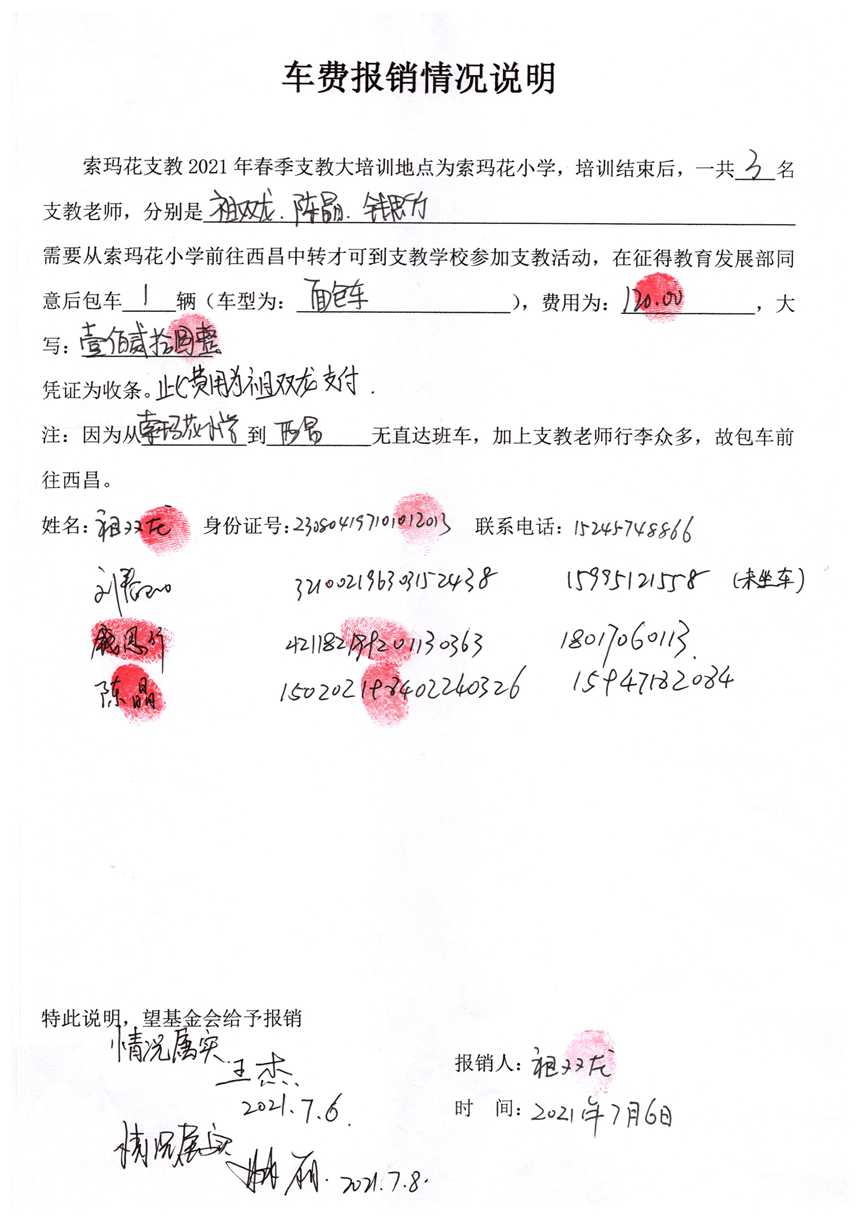 车费报销情况说明
索玛花支教 2021 年春季支教大培训地点为索玛花小学，培训结束后，一共 3 名
支教老师，分别是 祖双龙. 陈晶.
需要从索玛花小学前往西昌中转才可到支教学校参加支教活动，在征得教育发展部同
意后包车 1 辆（车型为： 面包车 ），费用为： 120.00 ，大
写：壹佰贰拾圆整
凭证为收条。此费用为祖双龙支付.
注：因为从索玛花小学到 西昌 无直达班车，加上支教老师行李众多，故包车前
往西昌。
姓名：祖双龙 身份证号：230804197101012013 联系电话：15245748866
321002196303152438 15995121558 (未坐车)
421182199201130363 18017060113
陈晶 150202198402240326 15947182084
特此说明，望基金会给予报销
情况属实
王杰
2021.7.6
报销人：祖双龙
时 间：2021年7月6日
情况属实
丽. 2021.7.8.